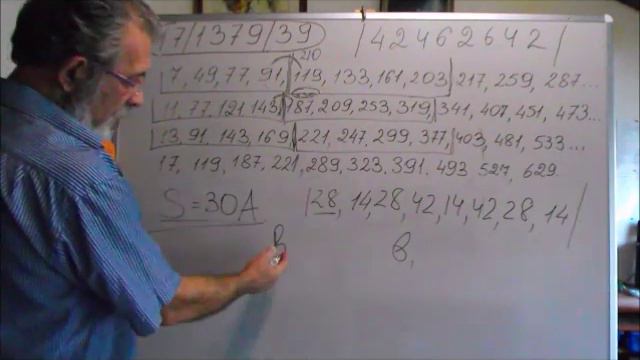 17/1379/39 |42462642|
210
7, 49, 77, 91, 119, 133, 161, 203, 217, 259, 287...
11, 77, 121, 143, 187, 209, 253, 319, 341, 407, 451, 473...
13, 91, 143, 169, 221, 247, 299, 377, 403, 481, 533...
17, 119, 187, 221, 289, 323, 391, 493, 527, 629.
S=30A |28, 14, 28, 42, 14, 42, 28, 14|